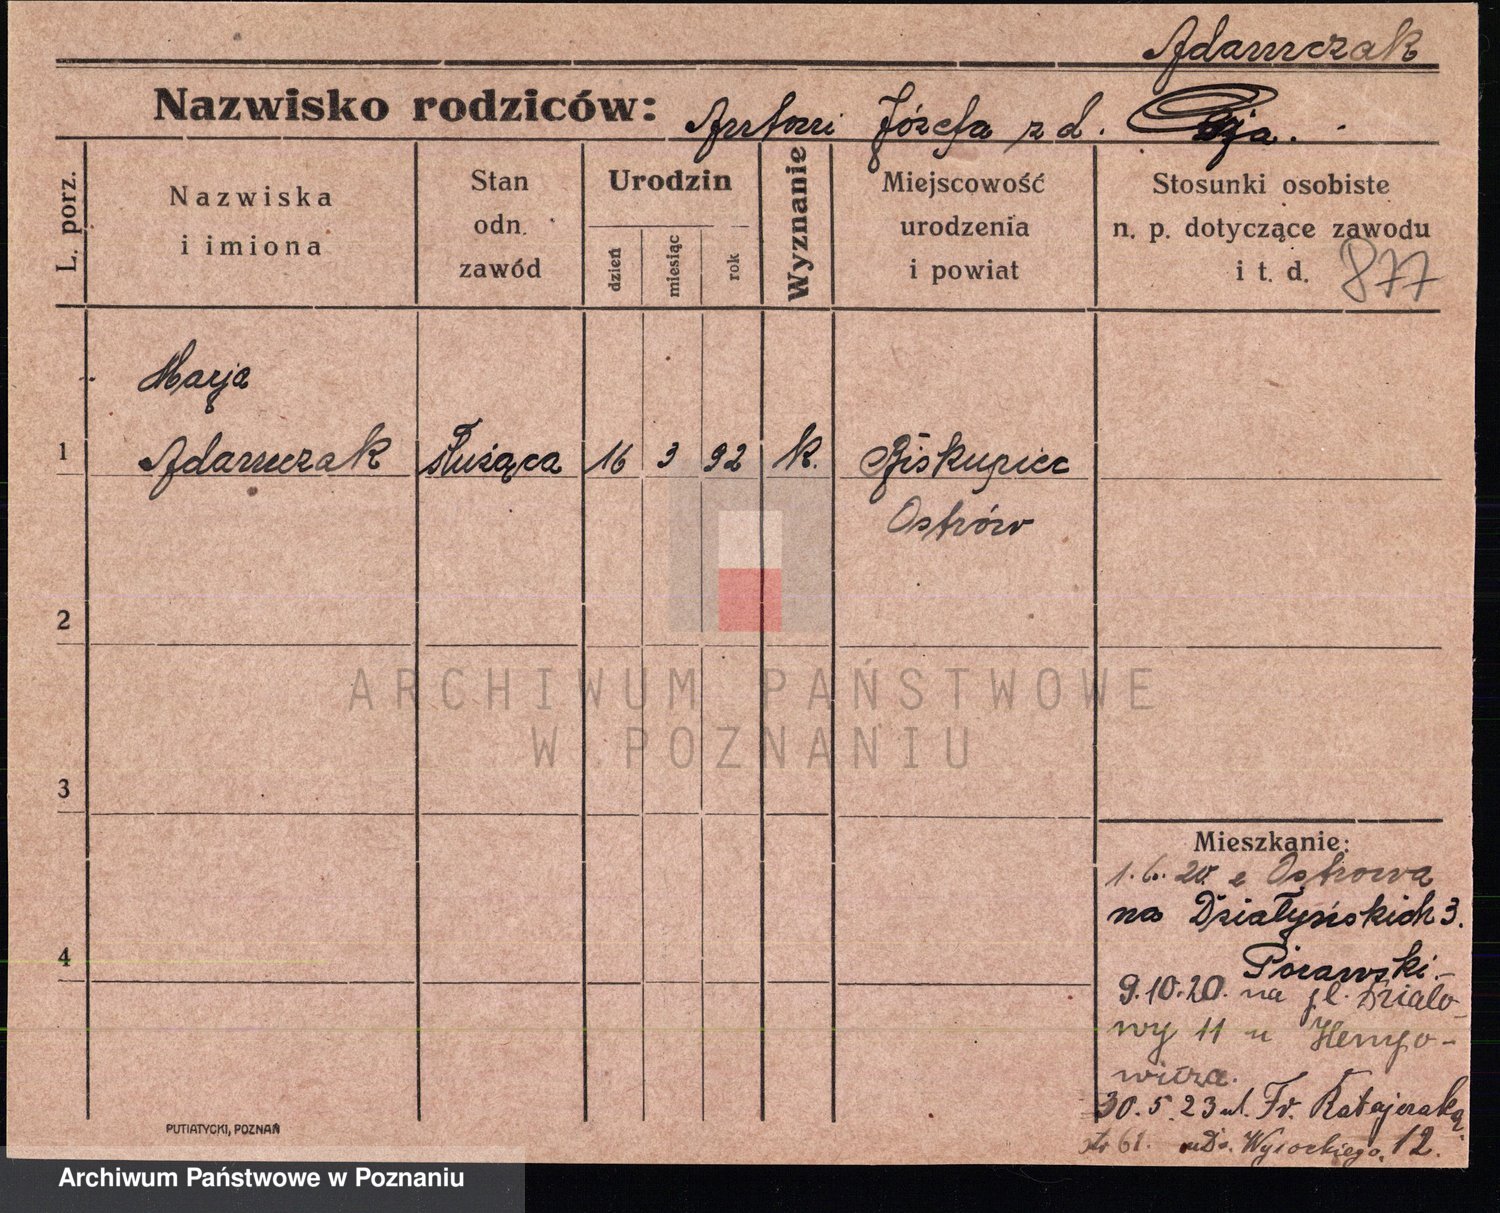 Adamczak
Nazwisko rodziców: Antoni Józefa z d.
L. porz.
Nazwiska
i imiona
Stan
odn.
zawód
Urodzin
dzień
miesiąc
rok
Wyznanie
Miejscowość
urodzenia
i powiat
Stosunki osobiste
n. p. dotyczące zawodu
i t. d. 877
Marja
1 Adamczak służąca 16 3 92 k. Biskupiec
Ostrów
2
3
4
ARCHIWUM PAŃSTWOWE
W POZNANIU
Mieszkanie:
1.6.20 z Ostrowa
na Działyńskich 3.
9.10.20. na pl. Działo-
wy 11 u
30.5.23 ul. Fr. Ratajczaka
61. Wysockiego. 12.
PUTIATYCKI, POZNAŃ
Archiwum Państwowe w Poznaniu